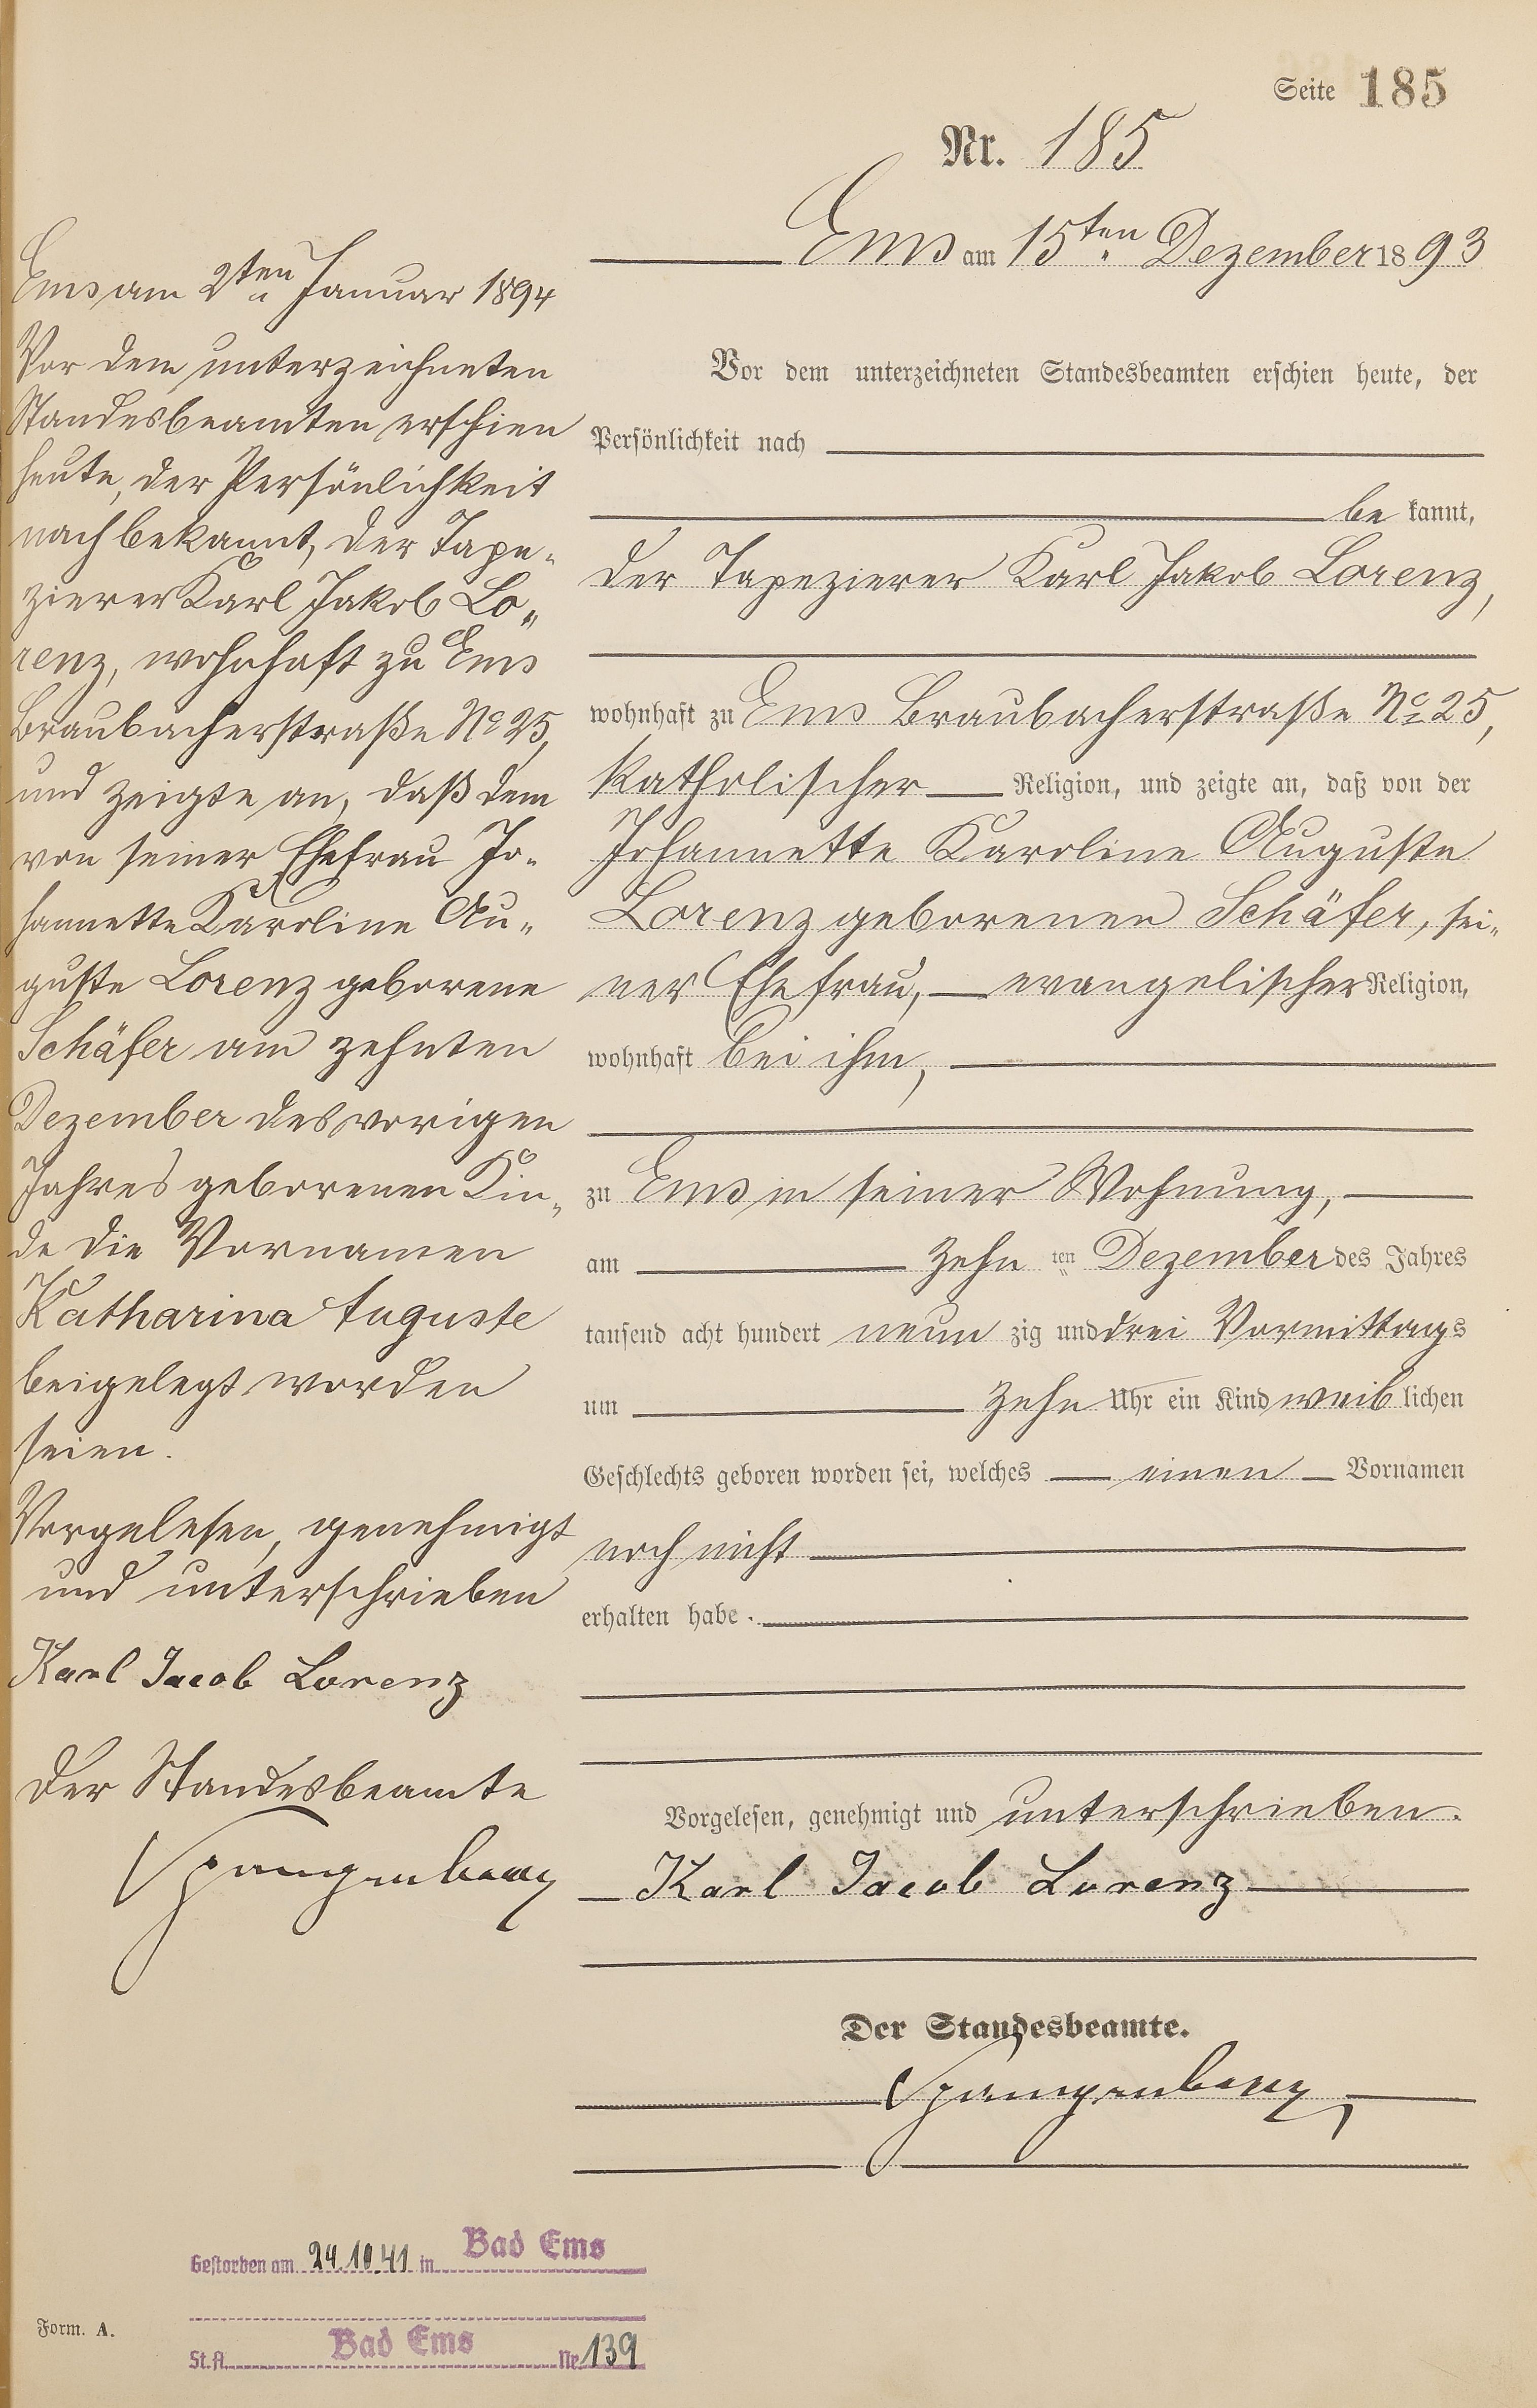 Seite 185
Nr. 185
Ems am 15ten Dezember 1893
Vor dem unterzeichneten Standesbeamten erschien heute, der
Persönlichkeit nach
be kannt,
der Tapezierer Karl Jakob Lorenz,
wohnhaft zu Ems Braubacherstraße No 25,
katholischer Religion, und zeigte an, daß von der
Johannette Karoline Auguste
Lorenz geborenen Schäfer, sei-
ner Ehefrau, evangelischer Religion,
wohnhaft bei ihm,
zu Ems in seiner Wohnung,
am zehn ten Dezember des Jahres
tausend acht hundert neun zig und drei Vormittags
um zehn Uhr ein Kind weib lichen
Geschlechts geboren worden sei, welches einen Vornamen
noch nicht
erhalten habe.
Vorgelesen, genehmigt und unterschrieben.
Karl Jacob Lorenz
Der Standesbeamte.
Spangenberg
Ems am 2ten Januar 1894
Vor dem unterzeichneten
Standesbeamten erschien
heute, der Persönlichkeit
nach bekannt, der Tape-
zierer Karl Jakob Lo-
renz, wohnhaft zu Ems
Braubacherstraße No 25,
und zeigte an, daß dem
von seiner Ehefrau Jo-
hannette Karoline Au-
guste Lorenz geborene
Schäfer am zehnten
Dezember des vorigen
Jahres geborenen Kin-
de die Vornamen
Katharina Auguste
beigelegt worden
seien.
Vorgelesen, genehmigt
und unterschrieben
Karl Jacob Lorenz
Der Standesbeamte
Spangenberg
Gestorben am 24.10.41 in Bad Ems
St.A. Bad Ems Nr. 139
Form. A.